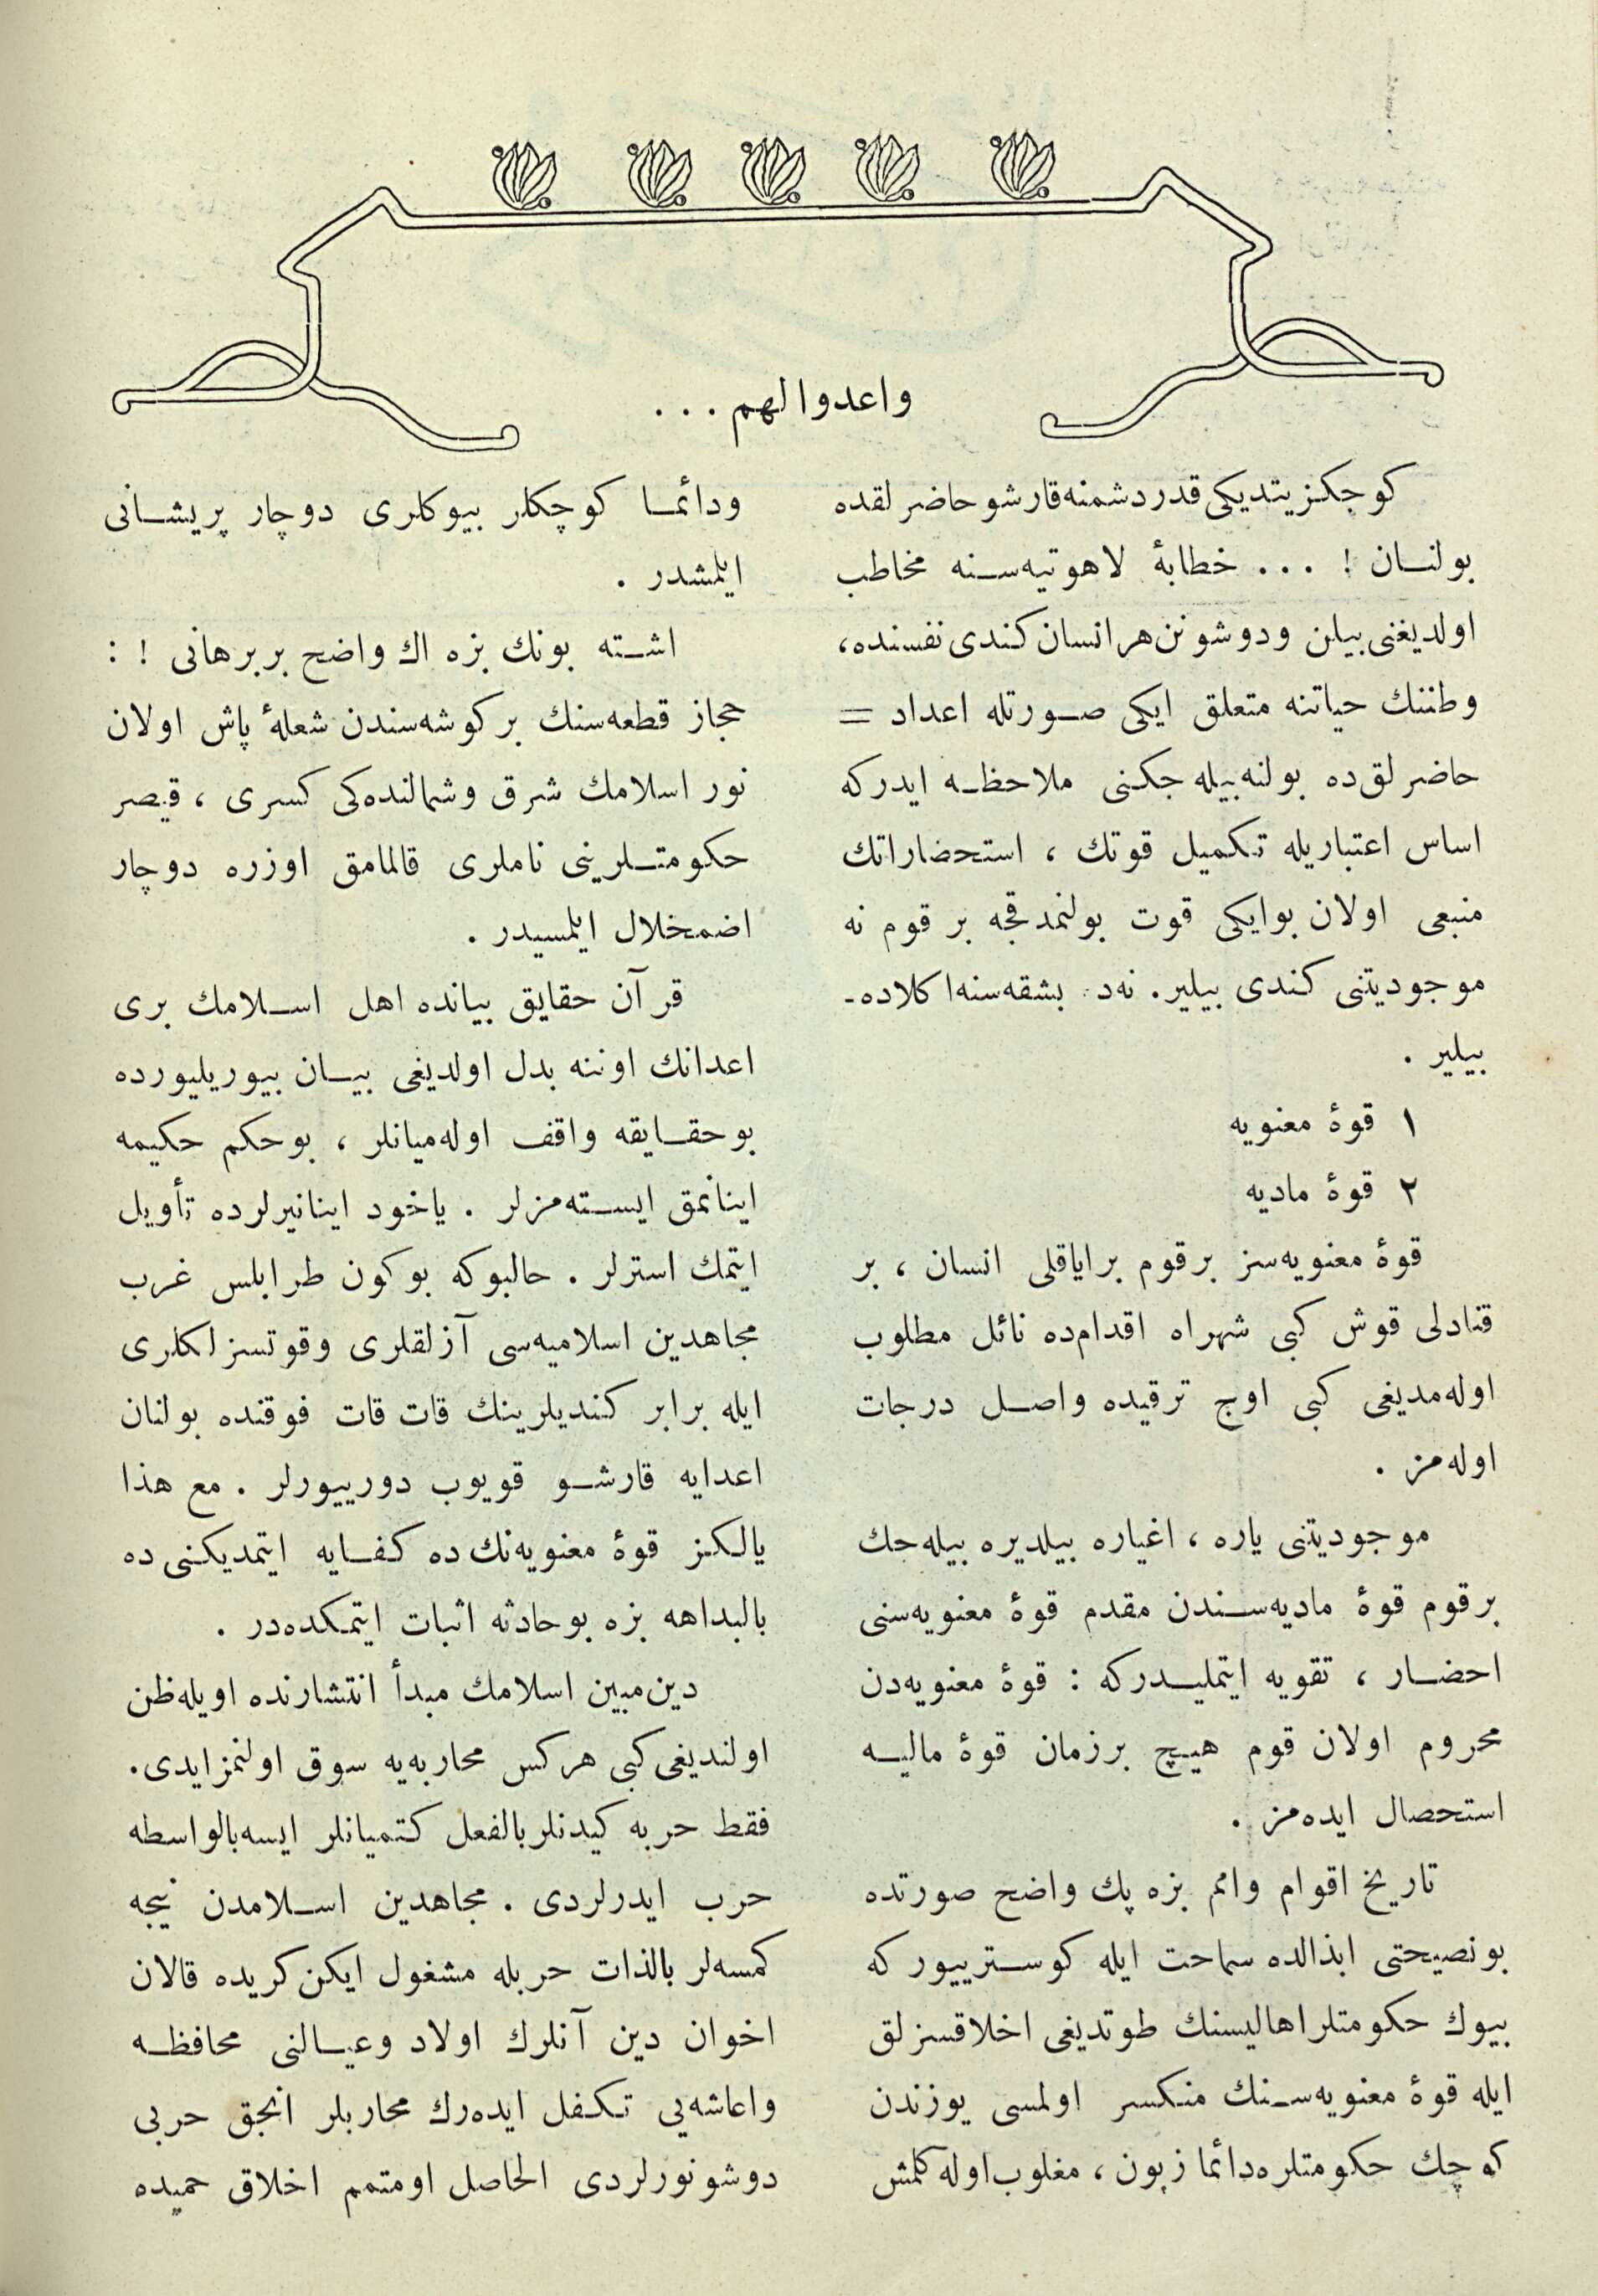 واعدوا لهم ...
كوجكز يتديكى قدر دشمنه قارشو حاضر لقده
بولنان ! ... خطابۀ لاهوتيه‌سنه مخاطب
اولديغنى بيلن ودوشونن هر انسان كندى نفسنده،
وطننك حياتنه متعلق ايكى صورتله اعداد =
حاضرلق‌ده بولنه‌بيله جكنى ملاحظه ايدركه
اساس اعتباريله تكميل قوتك ، استحضاراتك
منبعى اولان بوايكى قوت بولنمدقجه بر قوم نه
موجوديتنى كندى بيلير. نه‌د بشقه‌سنه اكلاده-
بيلير .
١ قوۀ معنويه
٢ قوۀ ماديه
قوۀ معنويه‌سز برقوم براياقلى انسان ، بر
قنادلى قوش كبى شهراه اقدام‌ده نائل مطلوب
اوله‌مديغى كبى اوج ترقيده واصل درجات
اوله‌مز .
موجوديتنى ياره ، اغياره بيلديره بيله‌جك
برقوم قوۀ ماديه‌سندن مقدم قوۀ معنويه‌سنى
احضار ، تقويه ايتمليدركه : قوۀ معنويه‌دن
محروم اولان قوم هيچ برزمان قوۀ ماليه
استحصال ايده‌مز .
تاريخ اقوام وامم بزه پك واضح صورتده
بونصيحتى ابذالده سماحت ايله كوستريیور كه
بيوك حكومتلر اهاليسنك طوتديغى اخلاقسزلق
ايله قوۀ معنويه‌سنك منكسر اولمسى يوزندن
كوچك حكومتلره دائما زبون ، مغلوب اوله كلمش
ودائما كوچكلر بيوكلرى دوچار پريشانى
ايلمشدر .
اشته بونك بزه اك واضح بربرهانى ! :
حجاز قطعه‌سنك بركوشه‌سندن شعلۀ پاش اولان
نور اسلامك شرق وشمالنده‌كى كسرى ، قيصر
حكومتلرينى ناملرى قالمامق اوزره دوچار
اضمحلال ايلمسيدر .
قرآن حقايق بيانده اهل اسلامك برى
اعدانك اوننه بدل اولديغى بيان بيوريليورده
بوحقايقه واقف اوله‌ميانلر ، بوحكم حكيمه
اينانمق ايسته‌مزلر . ياخود اينانيرلرده تأويل
ايتمك استرلر . حالبوكه بوكون طرابلس غرب
مجاهدين اسلاميه‌سى آزلقلرى وقوتسزلكلرى
ايله برابر كنديلرينك قات قات فوقنده بولنان
اعدايه قارشو قويوب دورييورلر . مع هذا
يالكز قوۀ معنويه‌نك ده كفايه ايتمديكنى ده
بالبداهه بزه بوحادثه اثبات ايتمكده‌در .
دين مبين اسلامك مبدأ انتشارنده اويله ظن
اولنديغى كبى هركس محاربه‌يه سوق اولنمزايدى.
فقط حربه كيدنلر بالفعل كتميانلر ايسه بالواسطه
حرب ايدرلردى . مجاهدين اسلامدن نيجه
كمسه‌لر بالذات حربله مشغول ايكن كريده قالان
اخوان دين آنلرك اولاد وعيالنى محافظه
واعاشه‌يى تكفل ايده‌رك محاربلر انجق حربى
دوشونورلردى الحاصل اومتمم اخلاق حميده